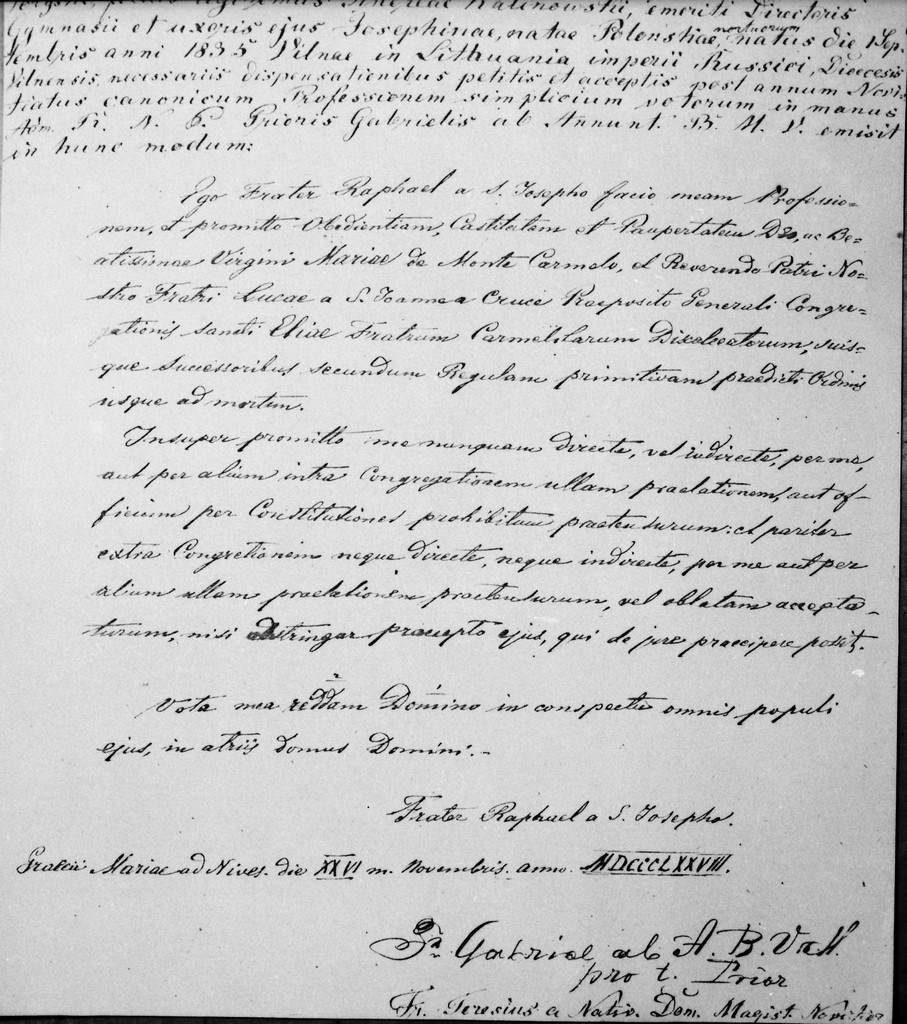 Andreae Kalinowski, emeriti Directoris
Gymnasii et uxoris ejus Josephinae, natae Polonskiae, mortuorum natus die 1 Sep-
tembris anni 1835 Vilnae in Lithuania imperii Russici, Dioecesis
Vilnensis, necessariis dispensationibus petitis et acceptis post annum Novi-
tiatus canonicum Professionem simplicium votorum in manus
Adm. R. N. P. Prioris Gabrielis ab Annunt. B. M. V. emisit
in hunc modum:
Ego Frater Raphael a S. Josepho facio meam Professio-
nem, et promitto Obedientiam, Castitatem et Paupertatem Deo, ac Be-
atissimae Virgini Mariae de Monte Carmelo, et Reverendo Patri No-
stro Fratri Lucae a S. Joanne a Cruce Praeposito Generali Congre-
gationis sancti Eliae Fratrum Carmelitarum Discalceatorum, suis-
que Successoribus secundum Regulam primitivam praedicti Ordinis
usque ad mortem.
Insuper promitto me nunquam directe, vel indirecte, per me,
aut per alium intra Congregationem ullam praelationem, aut of-
ficium per Constitutiones prohibitum praetensurum: et pariter
extra Congretionem neque directe, neque indirecte, per me aut per
alium ullam praelationem praetensurum, vel oblatam accepta-
turum, nisi adstringar praecepto ejus, qui de jure praecipere possit.
Vota mea reddam Domino in conspectu omnis populi
ejus, in atriis domus Domini.-
Frater Raphael a S. Josepho.
Graecii Mariae ad Nives. die XXVI m. Novembris. anno. MDCCCLXXVIII.
Fr. Gabriel ab A. B. V. M.
pro t. Prior
Fr. Teresius a Nativ. Dom. Magist. Novitior